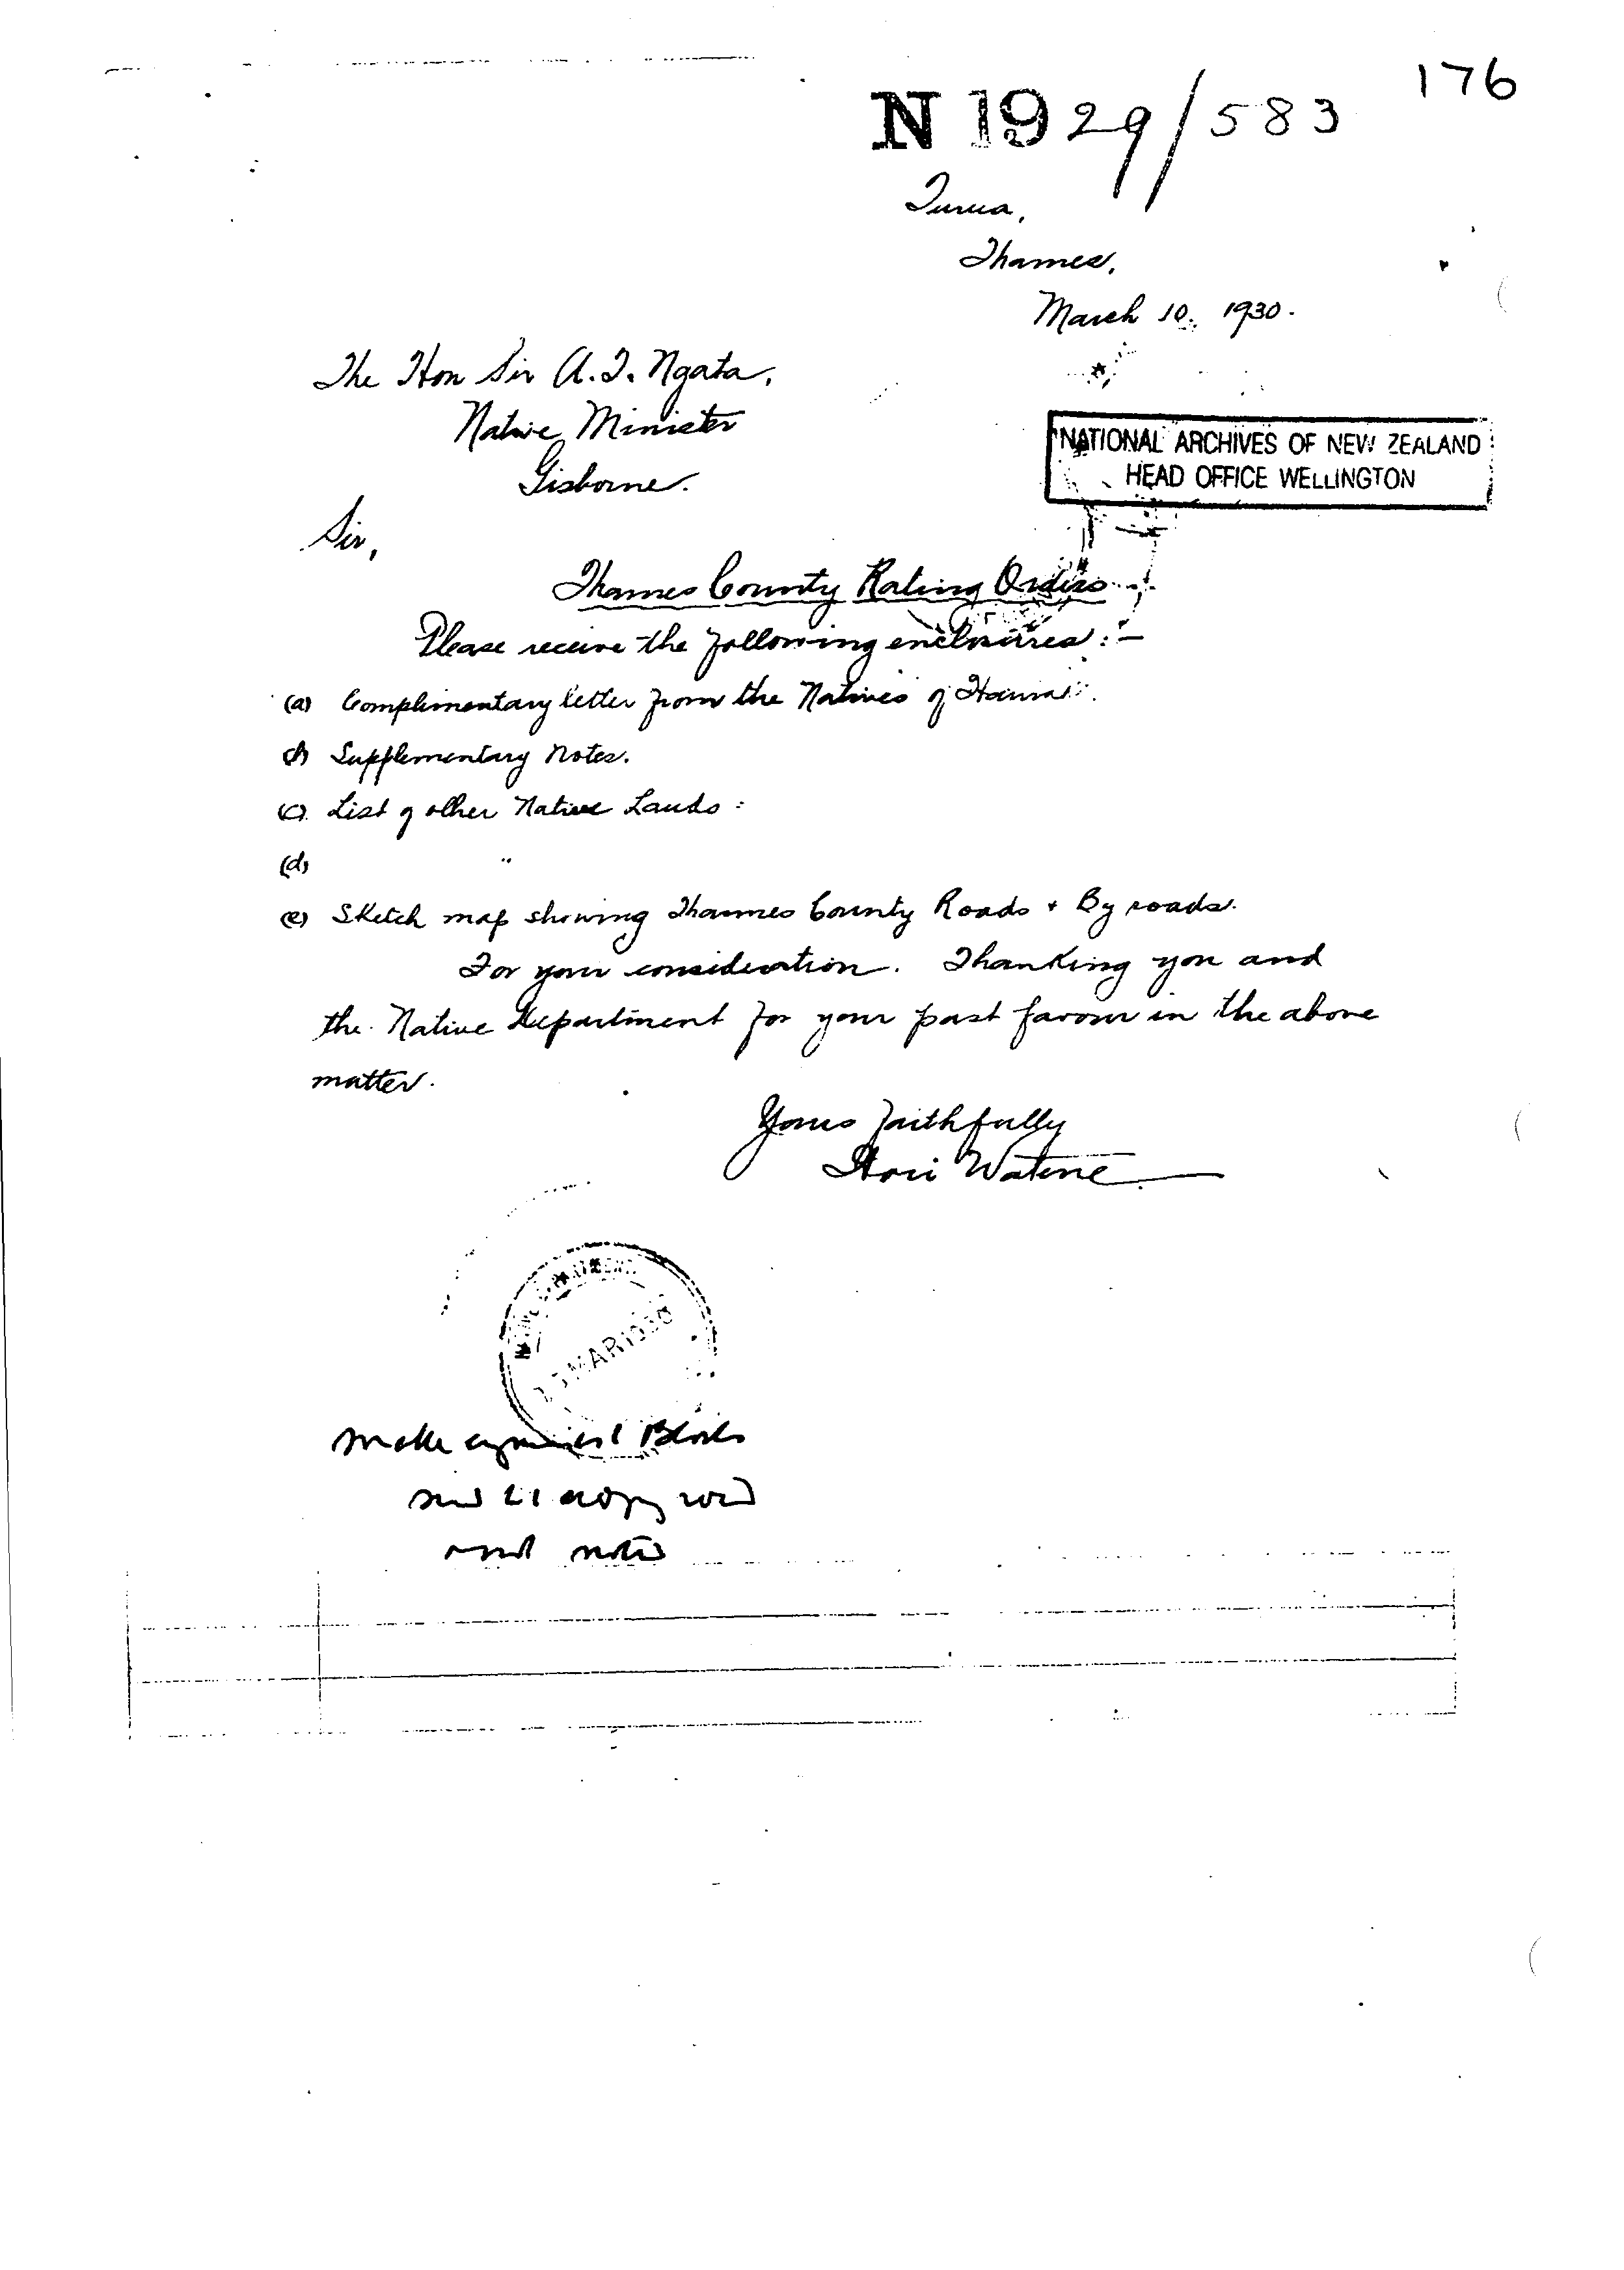 176
N 1929/583
Turua,
Thames,
March 10, 1930.
The Hon Sir A. T. Ngata,
Native Minister
Gisborne.
NATIONAL ARCHIVES OF NEW ZEALAND
HEAD OFFICE WELLINGTON
Sir,
Thames County Rating Orders
Please receive the following enclosures:-
(a) Complimentary letter from the Natives of
(b) Supplementary Notes.
(c) List of other Native Lands:
(d) "
(e) Sketch map showing Thames County Roads + By roads.
For your consideration. Thanking you and
the Native Department for your past favour in the above
matter.
Yours faithfully
Hori Watene
MAR 1930
Blocks
and notes